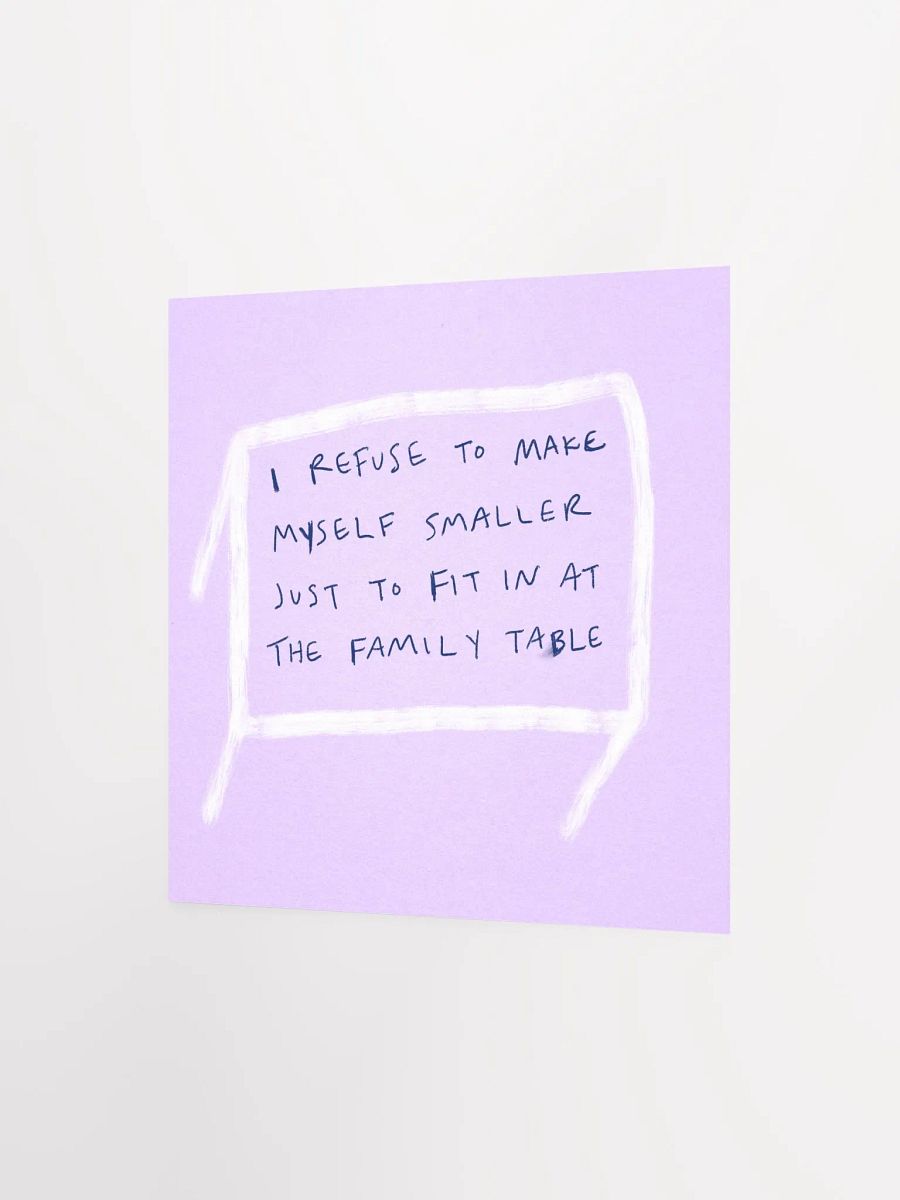 I REFUSE TO MAKE
MYSELF SMALLER
JUST TO FIT IN AT
THE FAMILY TABLE